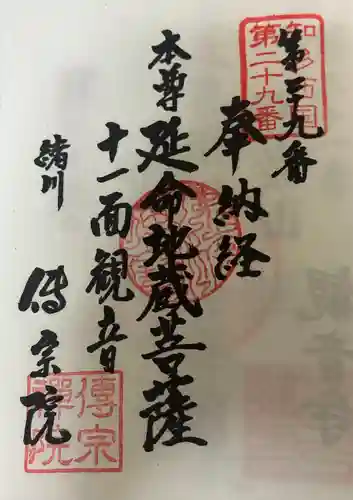 第二九番
知多百観
第二十九番
奉納経
本尊
延命地蔵菩薩
十一面観音
緒川
傳宗院
傳宗
禪院